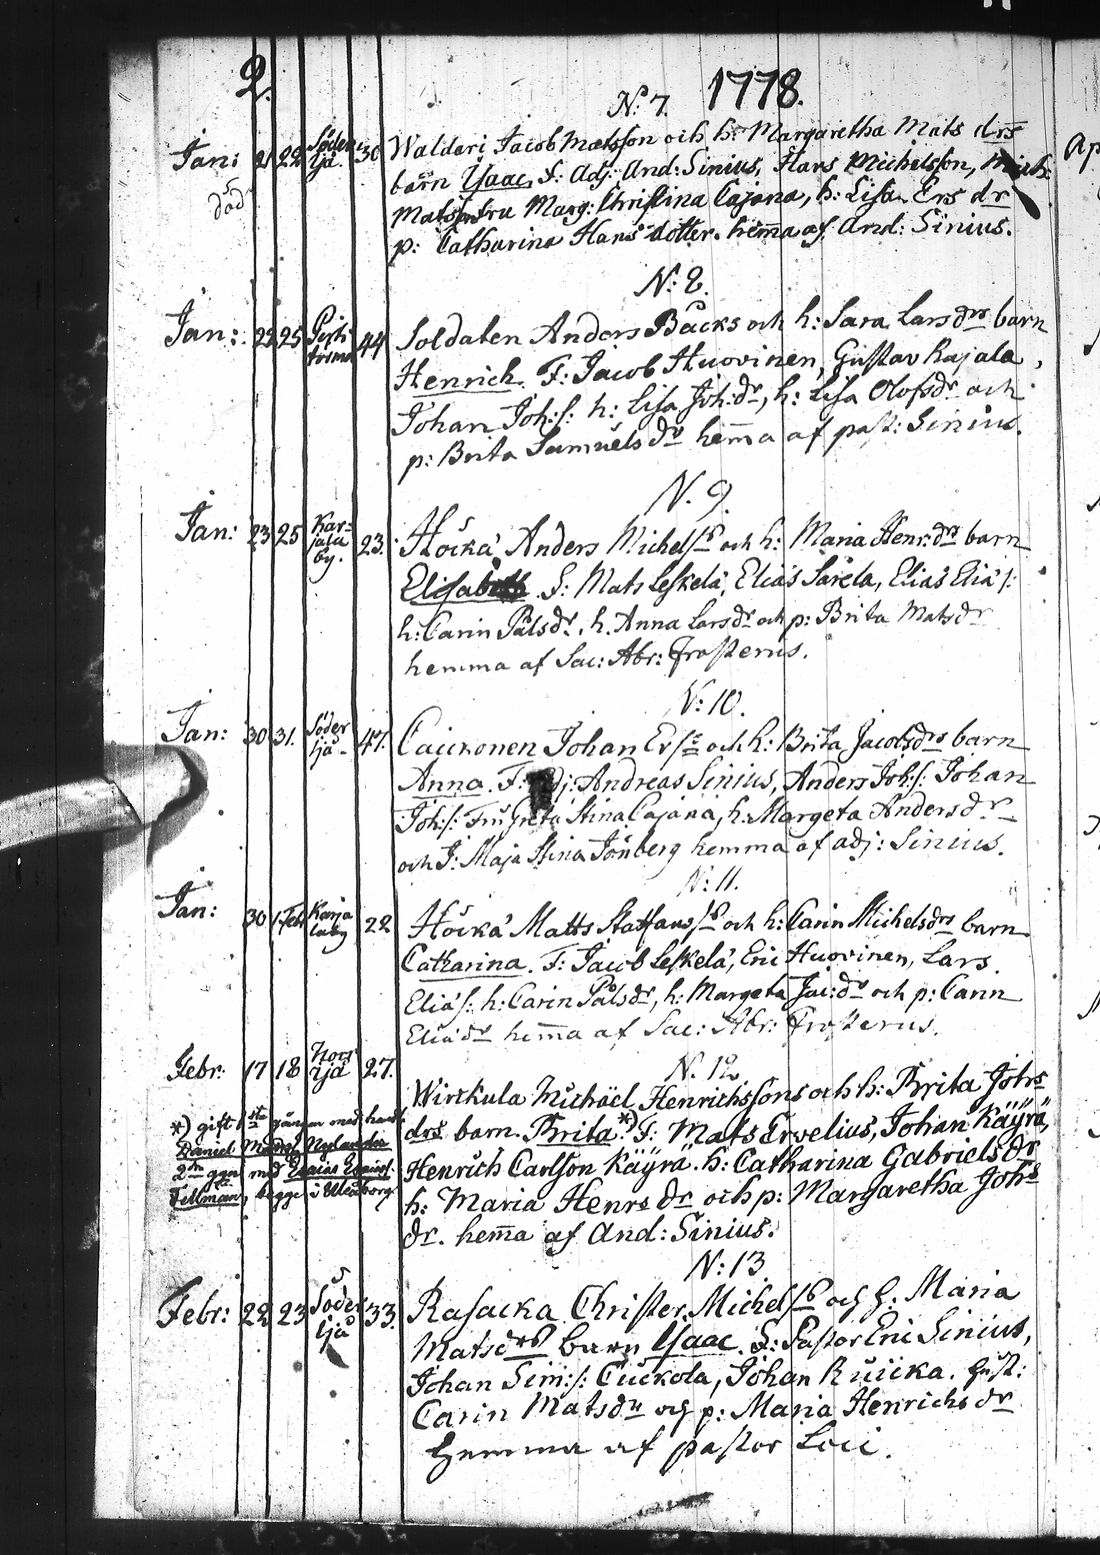 2.
1778.
N:o 7.
Jan: 21 22 Söder ljä 30 Walderi Jacob Matsson och h: Margaretha Mats drs
död barn Isaac, F: Adj: And: Sinius, Hans Michelsson, Mich:
Matsson Fru Marg: Christina Cajana, h: Lisa Ers dr
p: Catharina Hans dotter. hema af And: Sinius.
N: 8.
Jan: 22 25 44 Soldaten Anders Backs och h: Sara Lars drs barn
Henrich. F: Jacob Huovinen, Gustav Kajala,
Johan Joh: s: h: Lisa Joh: dr, h: Lisa Olofsdr och
p: Brita Samuels dr hem̄a af past: Sinius.
N. 9.
Jan: 23 25 Kar= jala by. 23. Höckä Anders Michels och h: Maria Henr: drs barn
Elisabeth F: Mats Leskelä, Elias Särelä, Elias Eliä s:
h: Carin Pålsdr, h. Anna Larsdr och p: Brita Matsdr
hemma af Sac: Abr: Frosterus.
N: 10.
Jan: 30 31. Söder ljä 47. Johan Ers och h: Brita Jacobsdrs barn
Anna. F: Adj: Andreas Sinius, Anders Joh: s: Johan
Joh: s: Fru Greta Stina Cajana, h: Margeta Anders dr
och J: Maja Stina Jönberg hemma af adj: Sinius.
N: 11.
Jan: 30 1. Feb Karja laby 22 Höckä Matts Staffans och h: Carin Michelsdrs barn
Catharina. F: Jacob Leskelä, Eric Huovinen, Lars
Eliä s: h: Carin Pålsdr, h: Margeta Jac: dr och p: Carin
Eliä dr hem̄a af Sac: Abr: Frosterus.
N: 12
Febr: 17 18 ljä 27. Wirkkula Michäel Henrichssons och h: Brita Johs
drs barn. Brita *) F: Mats Ervelius, Johan Käyrä,
Henrich Carlson Käyrä. h: Catharina Gabriels dr
h: Maria Henrs dr och p: Margaretha Johs
dr. hem̄a af And: Sinius.
*) gift 1sta gången med
Daniel Nylander
2dra gång med Esaias
Fellman, begge i Uleåborg
N: 13
Febr: 22 23 Söder ljä 33. Rasacka Christer Michels och h: Maria
Matsdrs barn Isaac. F: Pastor Eric Sinius,
Johan Sim: s: Cuckola, Johan Ruicka. hust:
Carin Matsdr och p: Maria Henrichs dr
hemma af pastor Loci.